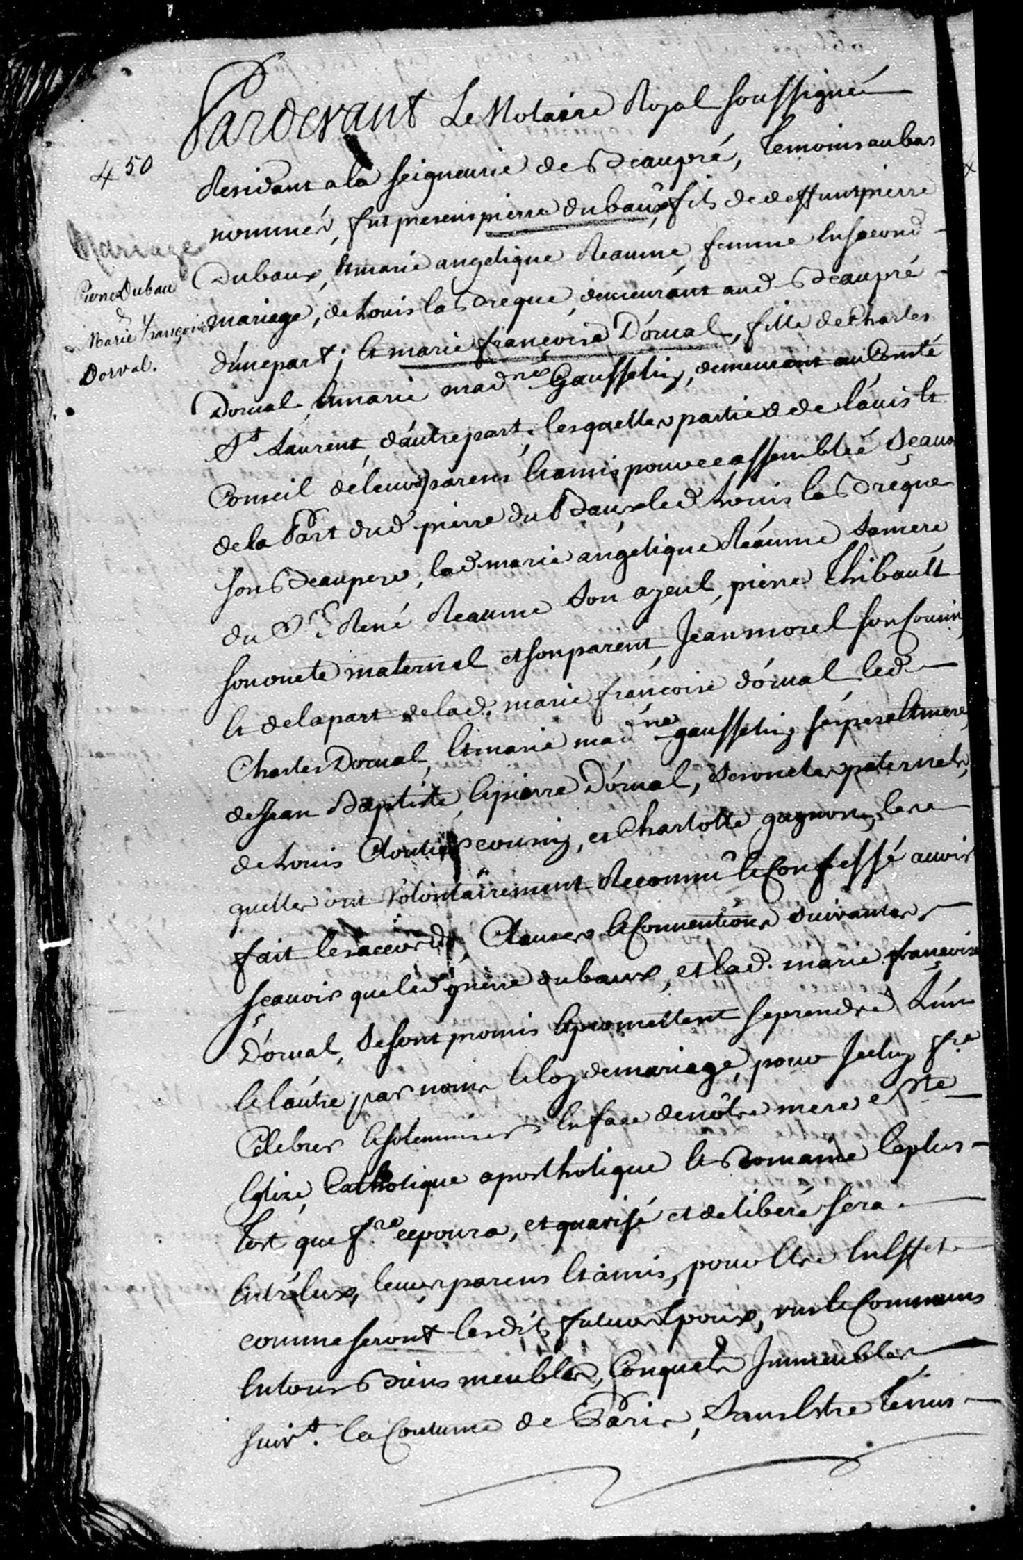 Pardevant Le Notaire Royal soussigné
450
Residant a la seigneurie de Beaupré, temoins au bas
nommés, fut presens pierre dubaux, fils de deffunt pierre
Mariage
Dubaux, et marie angelique Reaume femme en second
Pierre Dubau
&
Marie Françoise
Dorval.
mariage, de Louis la Breque, demeurant aud. Beaupré
d'une part; et marie françoise Dorval, fille de Charles
Dorval, et marie madne Gausselin, demeurant au Comté
St Laurent, d'autre part, lesquelles parties de l'avis et
Conseil de leurs parens et amis pour ce assemblé sçavoir
de la Part dud. pierre du Baux led. Louis la Breque
son Beaupere, lad. marie angelique Reaume sa mere
du Sr. René Reaume son ayeul, pierre Thibault
son oncle maternel et son parent, Jean morel son Cousin,
et de la part de lad. marie françoise dorval led.
Charles Dorval, et marie madne gausselin, ses pere et mere,
de Jean Baptiste et pierre Dorval, ses oncles paternels,
de Louis Cloutier cousin, et Charlotte gagnon, les
quelles ont volontairement Reconnu et Confessé avoir
fait les accords, Clauses et Conventions suivantes
sçavoir que led. pierre dubaux, et lad. marie françoise
Dorval, se sont promis et promettent se prendre L'un
et l'autre par nom et loy de mariage, pour Iceluy fre
Celebrer et solemniser en face de nôtre mere Ste
Eglise Catholique aposthotique et Romaine le plus
tost que fre ce poura, et qu'avisé et deliberé sera
entr'eux, leurs parens et amis, pour Etre en Effet
comme seront lesdits futurs Epoux, uns et Communs
en tous Biens meubles, Conquets Immeubles
suivt. la Coutume de Paris, sans Estre tenus